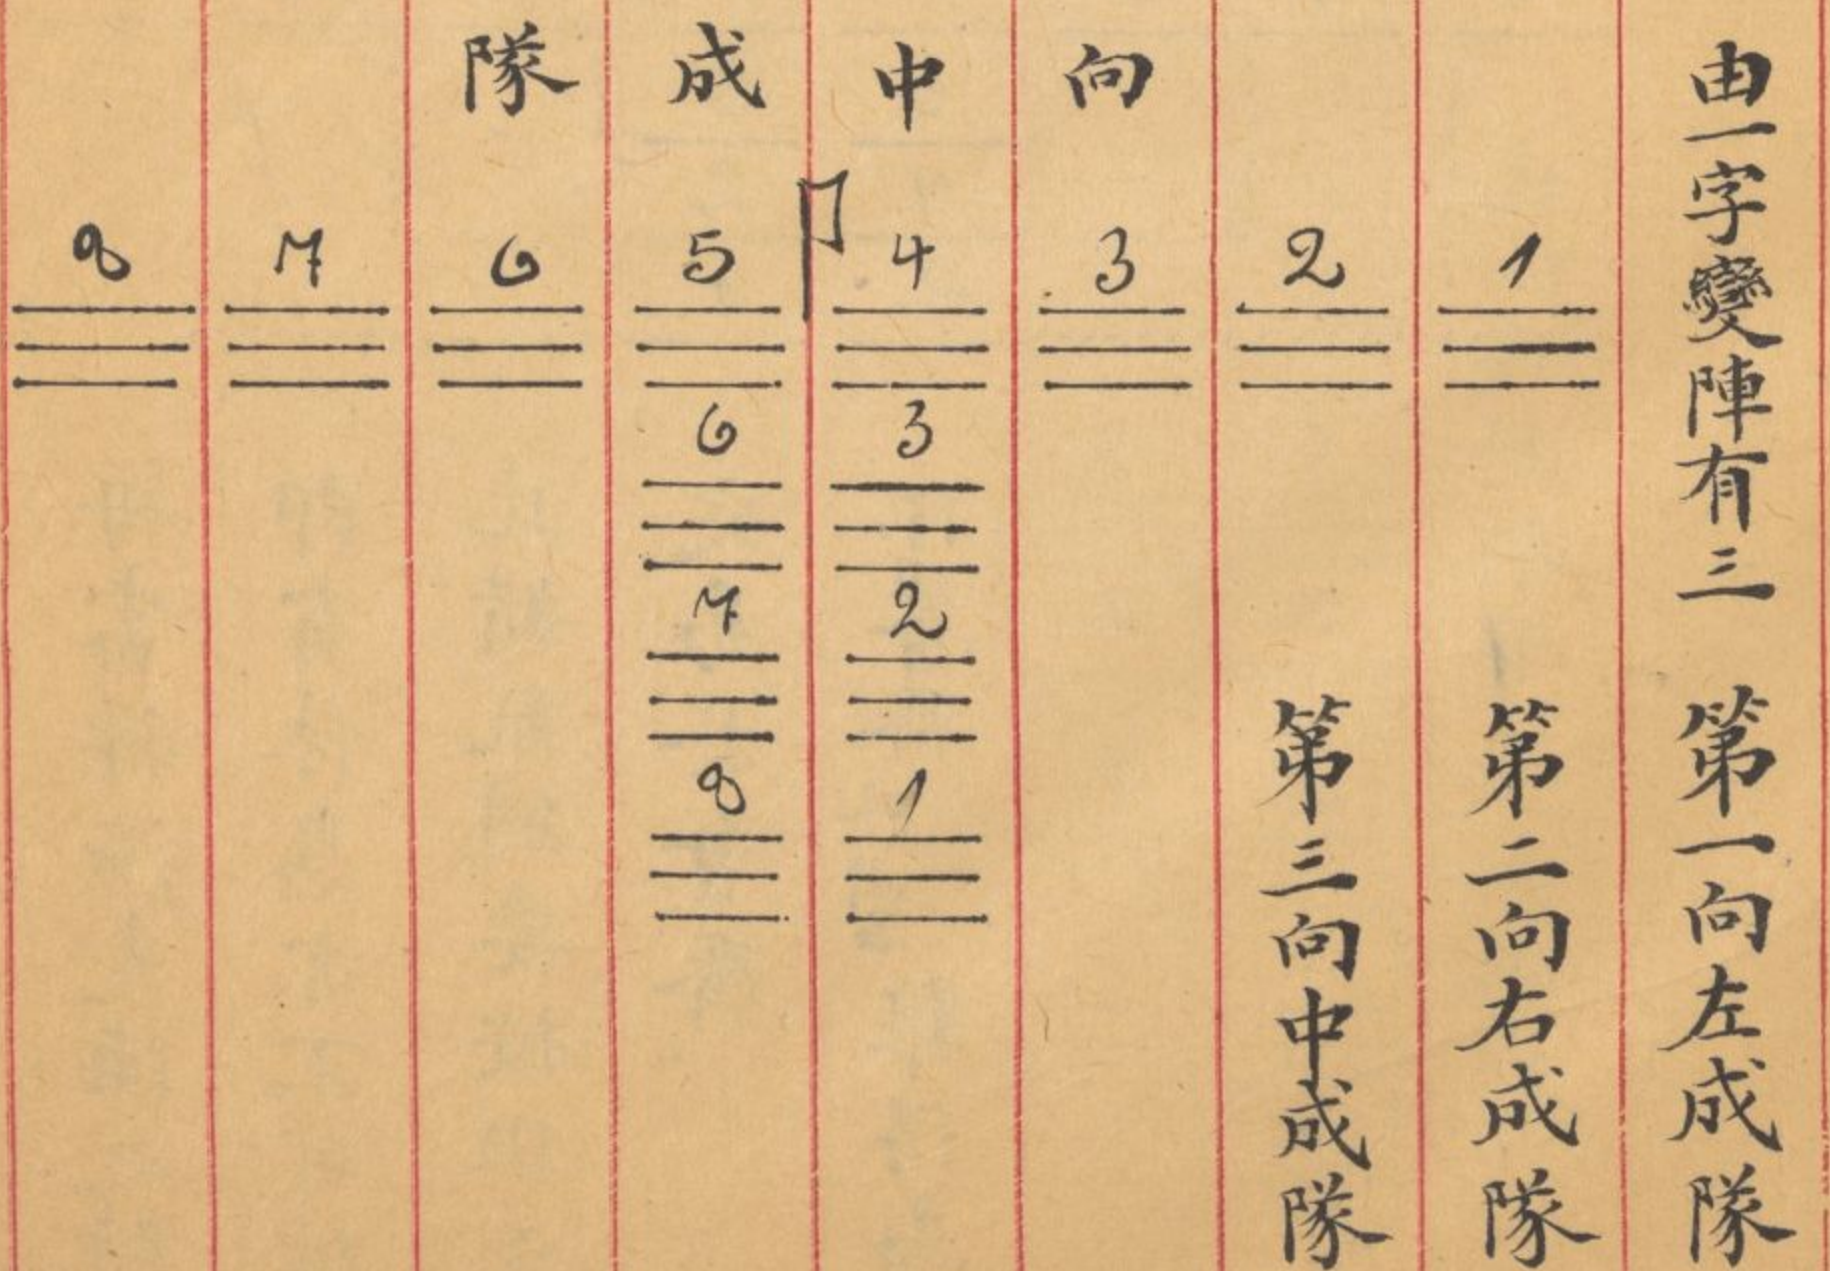 由一字變陣有三 第一向左成隊
第二向右成隊
第三向中成隊
向中成隊
1 2 3 4 5 6 7 8
3 6
2 7
1 8